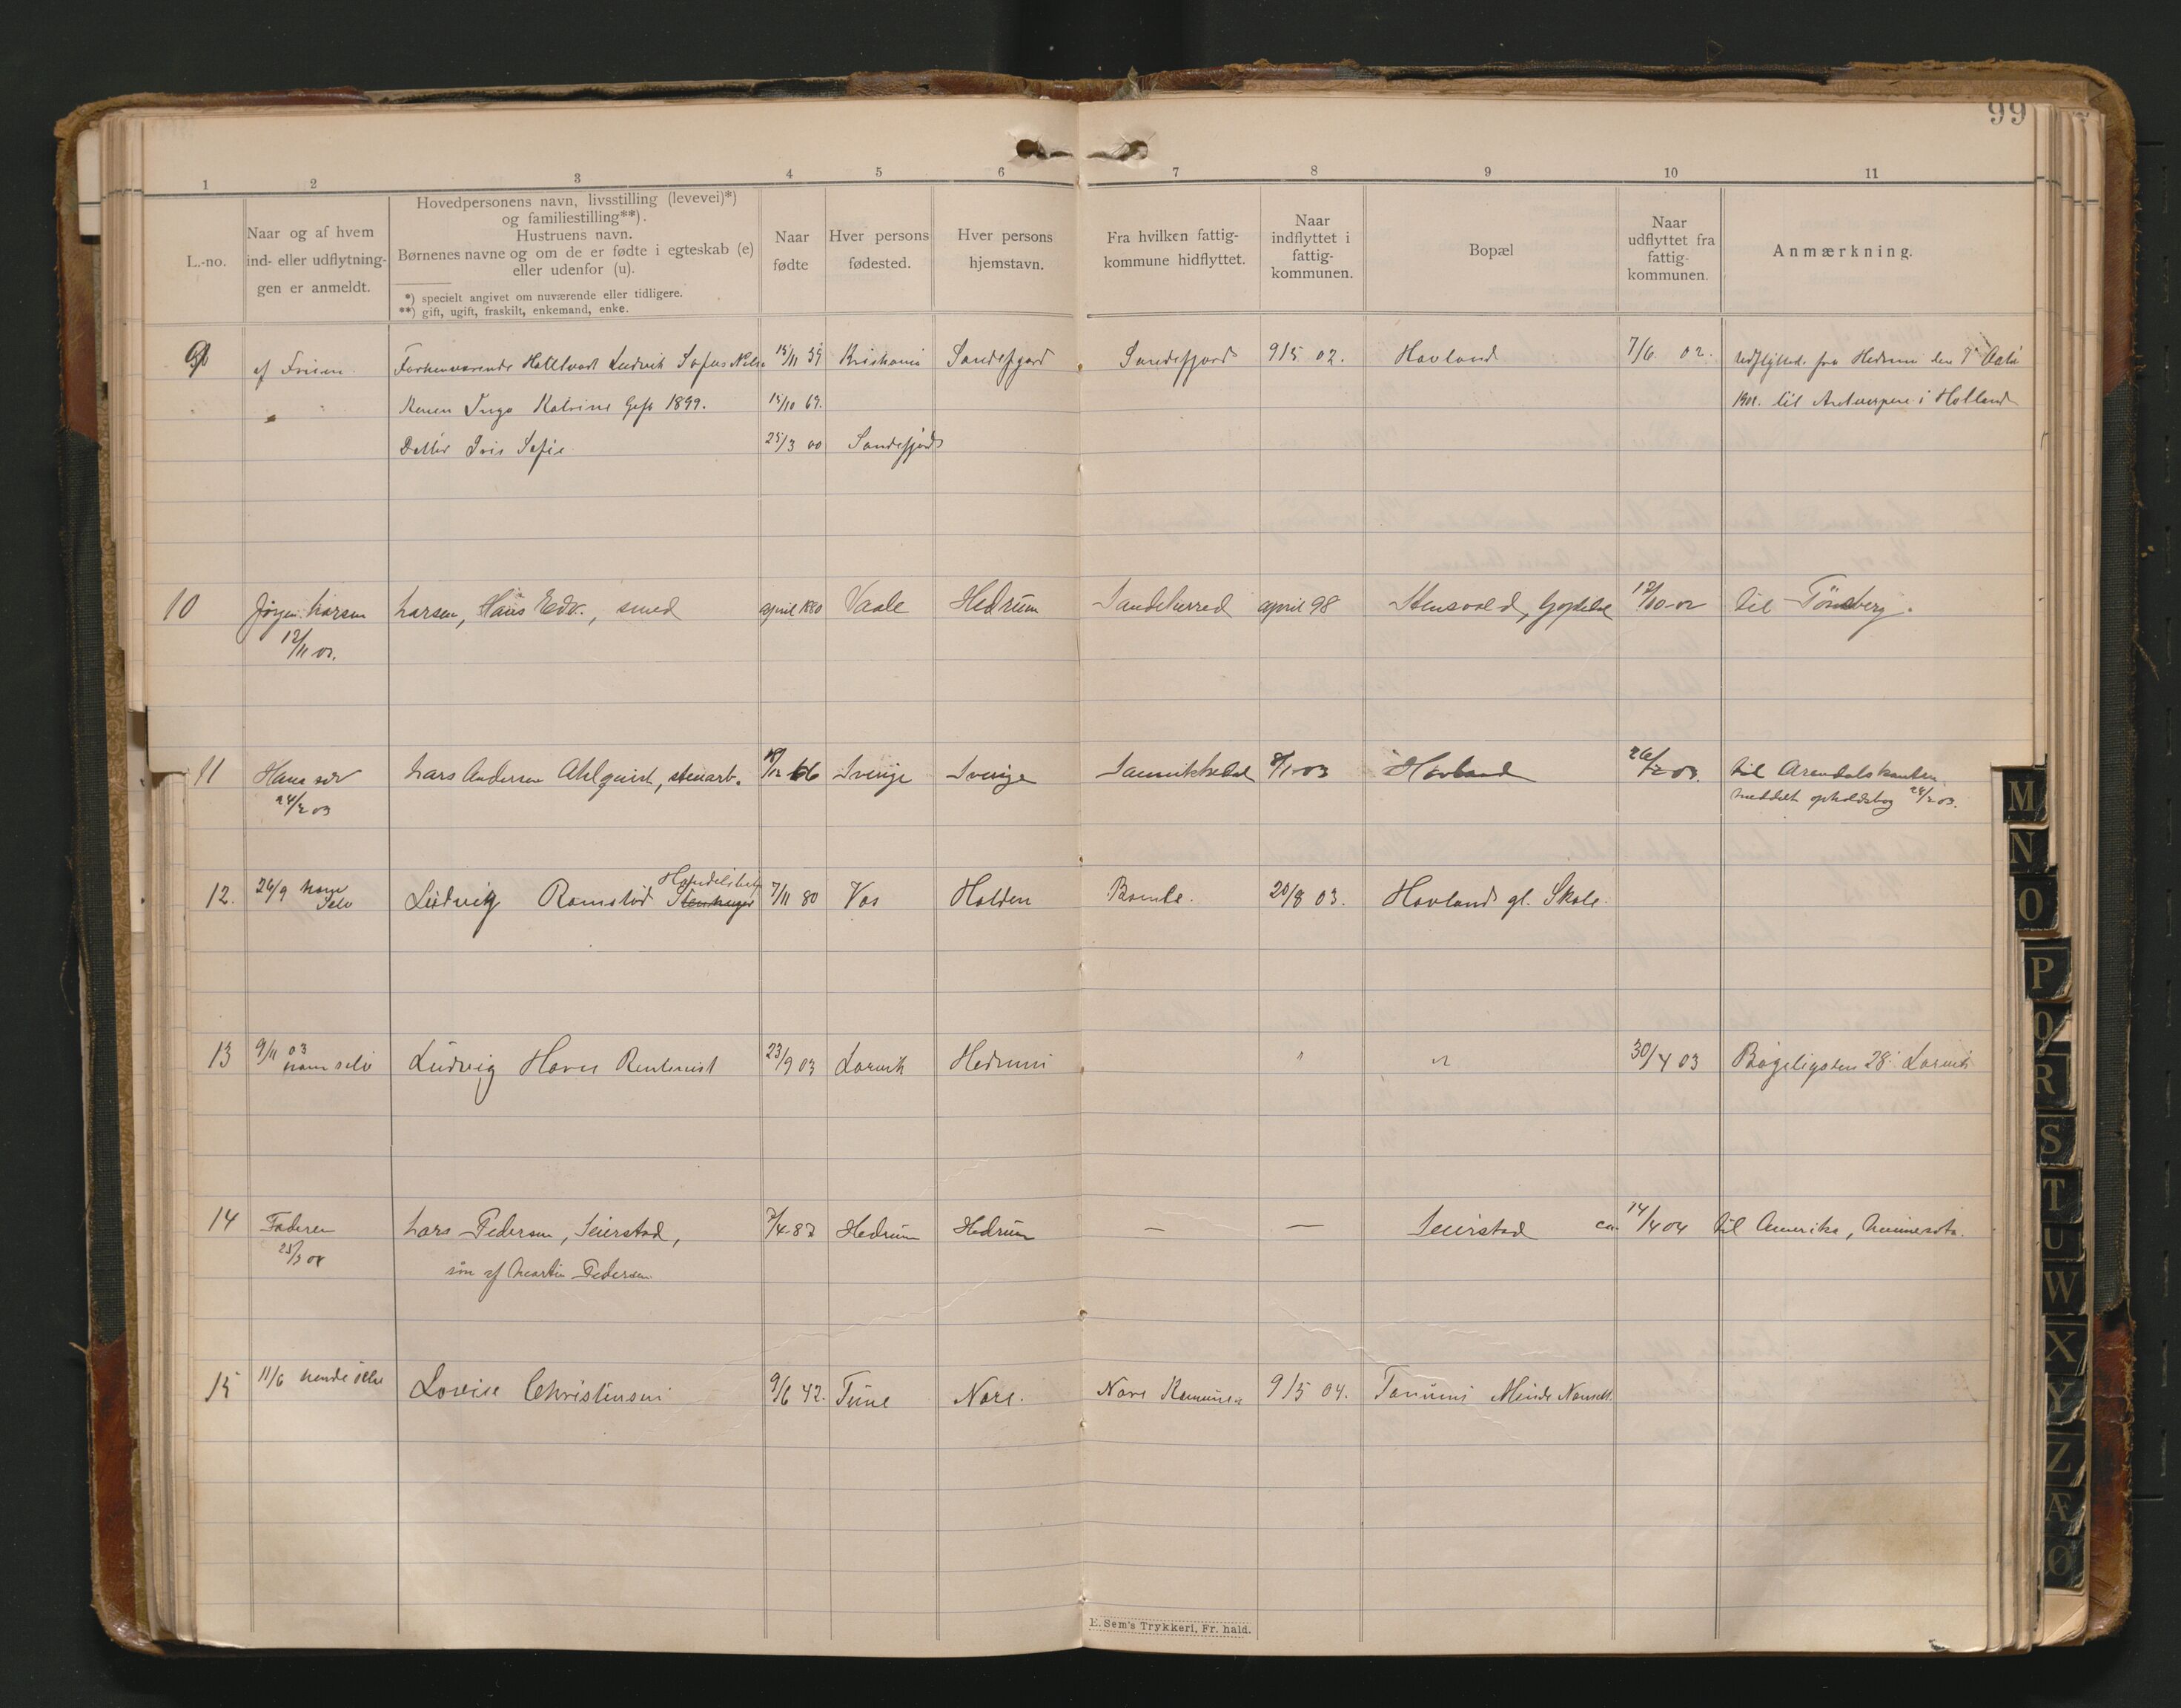 99
1 2 3 4 5 6 7 8 9 10 11
L.-no.
Naar og af hvem
ind- eller udflytnin-
gen er anmeldt.
Hovedpersonens navn, livsstilling (levevei)*)
og familiestilling**).
Hustruens navn.
Børnenes navne og om de er fødte i egteskab (e)
eller udenfor (u).
*) specielt angivet om nuværende eller tidligere.
**) gift, ugift, fraskilt, enkemand, enke.
Naar
fødte
Hver persons
fødested.
Hver persons
hjemstavn.
Fra hvilken fattig-
kommune hidflyttet.
Naar
indflyttet i
fattig-
kommunen.
Bopæl
Naar
udflyttet fra
fattig-
kommunen.
Anmærkning.
9 af Forhenværende Ludvik Sofus 15/11 59 Kristiania Sandefjord Sandefjord 9/5 02. Hovland 7/6 02. Udflyttede fra Hedrum den
" " Konen Inga Katrine Gift 1899. 15/10 69. til Antwerpen i Holland
Datter Sofie 25/3 00 Sandefjord
10 Jørgen Larsen Larsen, Hans Edv., smed april 1880 Vaale Hedrum Sandeherred april 98 12/10-02 til Tönsberg.
12/11 02.
11 Hans selv Lars Andersen Ahlquist, stenarb. 66 Sverige Sverige 8/1-03 Hovland 26/2 03. til Arendalskanten
24/2 03 meddelt opholdsbog 24/2 03.
Handelsbetj.
12. 26/9 Ham Ludvig Ramslöd Stenhuger 7/11 80 Vos Holden Bamle. 20/8 03. Hovlands gl. Skole.
Selv
13 9/11 03 Ludvig Rentenist 23/9 03 Larvik Hedrum " " 30/4 03 28 Larvik
ham selv
14 Faderen Lars Pedersen, Seierstad, 7/4-87 Hedrum Hedrum — — Seierstad ca. 14/4 04 til Amerika, Minnesota.
25/3 04 sön af Martin Pedersen.
15 11/6 hende selv Lovise Christensen 9/6 42. Tune Nore. Nore Komune 9/5 04. Tanums Minde
E. Sem's Trykkeri, Fr. hald.
M
N
O
P
Q
R
S
T
U
W
X
Y
Z
Æ
Ø